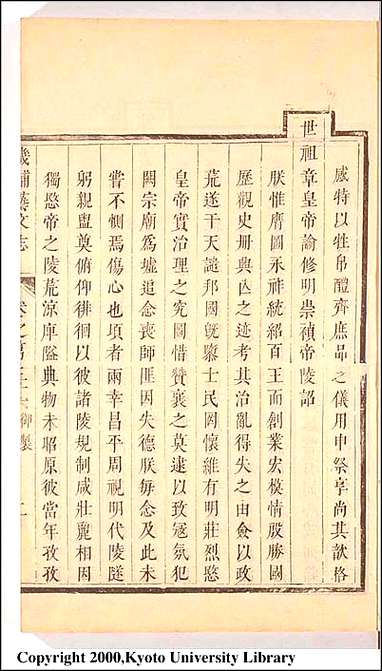 感特以牲帛醴齊庶品之儀用申祭享尚其歆格
世祖章皇帝諭修明崇禎帝陵詔
朕惟膺圖永祚統紹百王而創業宏模情殷勝國
歷觀史册興亡之迹考其治亂得失之由僉以政
荒遂干天譴邦國旣隳士民罔懷維有明莊烈愍
皇帝實治理之究圖惜贊襄之莫逮以致寇氛犯
闕宗廟爲墟追念喪師匪因失德朕每念及此未
嘗不惻焉傷心也頃者兩幸昌平周視明代陵寢
躬親盥奠俯仰徘徊以彼諸陵規制咸壯麗相因
獨愍帝之陵荒涼庳隘典物未昭原彼當年孜孜
畿輔藝文志
御製
Copyright 2000,Kyoto University Library